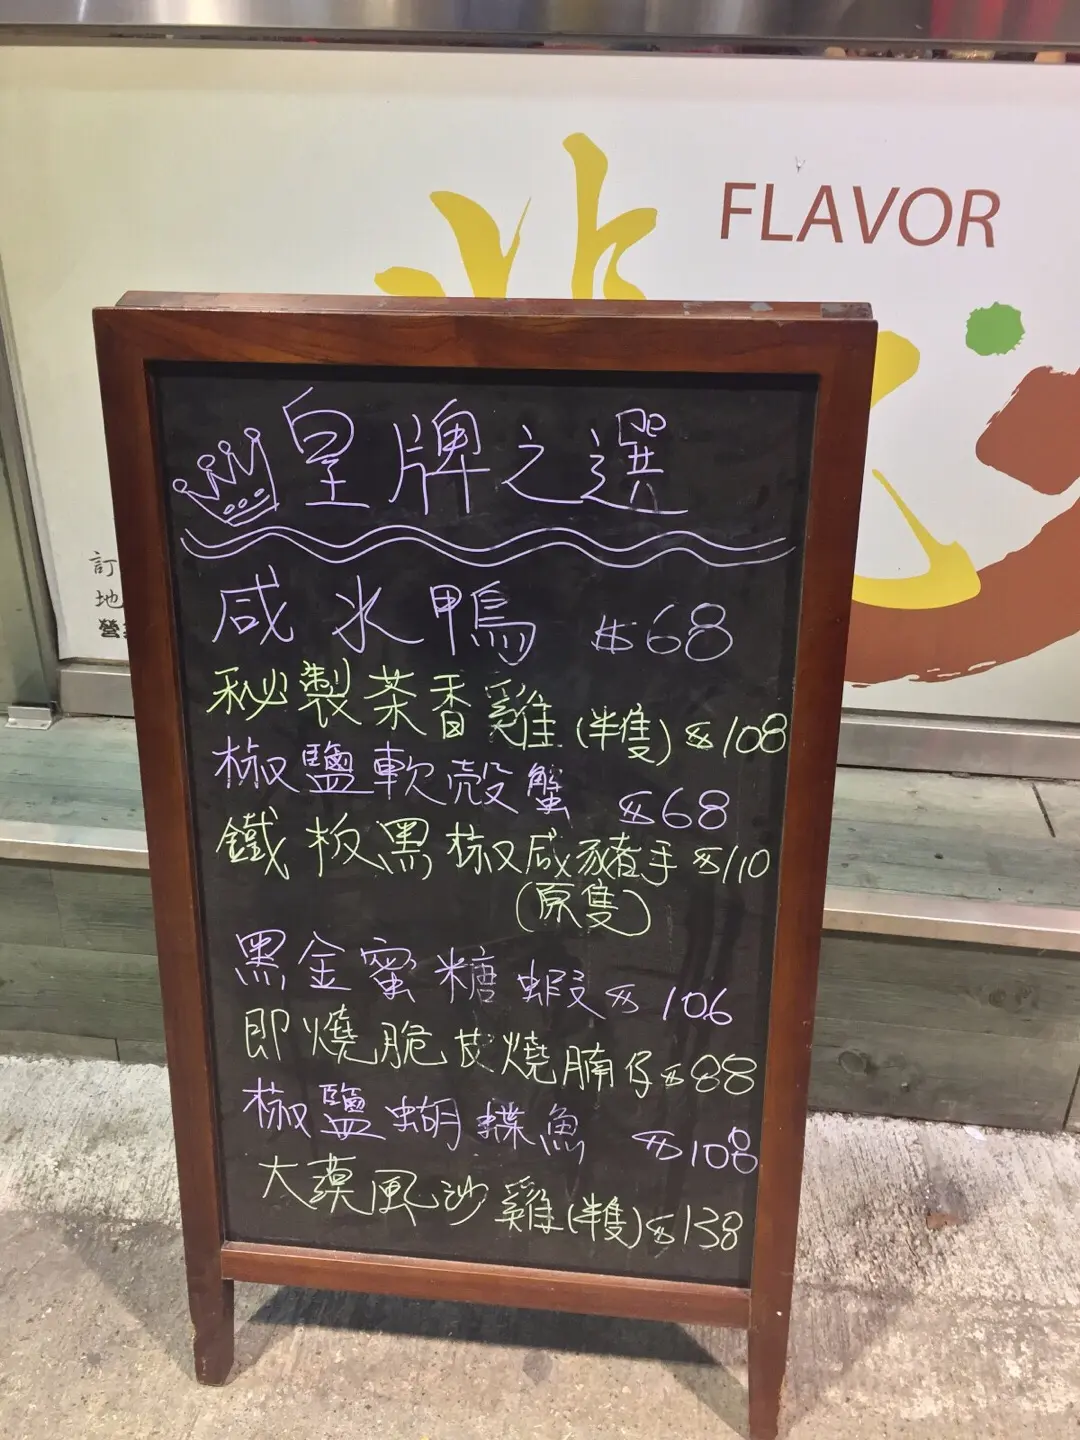 FLAVOR
皇牌之選
咸水鴨 $68
秘製茶香雞(半隻) $108
椒鹽軟殼蟹 $68
鐵板黑椒咸豬手 $110
(原隻)
黑金蜜糖蝦 $106
即燒脆皮燒腩仔 $88
椒鹽蝴蝶魚 $108
大漠風沙雞(半隻) $138
訂
地
營